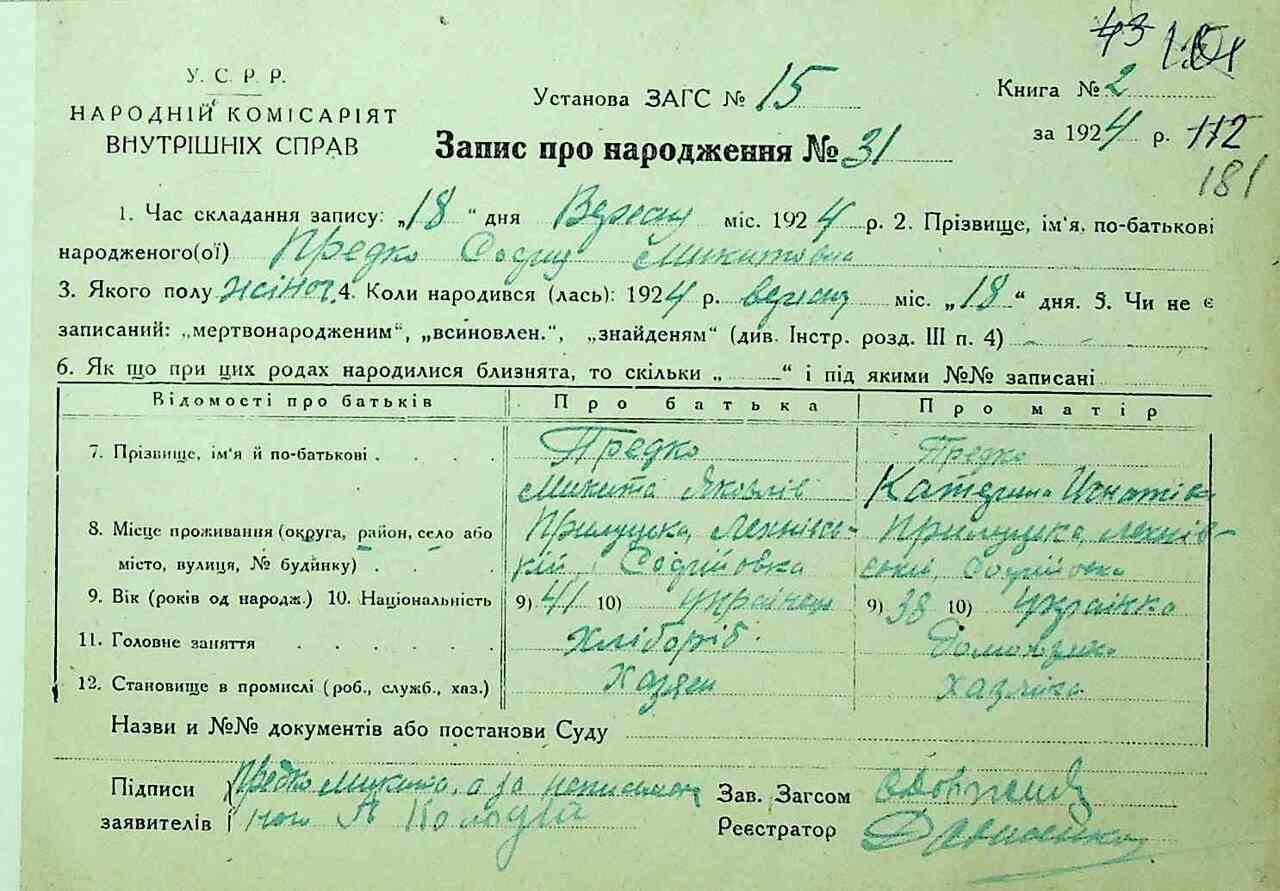 43 101
У. С. Р. Р.
НАРОДНІЙ КОМІСАРІЯТ
ВНУТРІШНІХ СПРАВ
Установа ЗАГС № 15
Запис про народження № 31
Книга № 2
за 1924 р. 112
181
1. Час складання запису: „18“ дня Вересня міс. 1924 р. 2. Прізвище, ім'я, по-батькові
народженого(ої) Предко Софія Микитовна
3. Якого полу жіноч. 4. Коли народився (лась): 1924 р. вересня міс. „18“ дня. 5. Чи не є
записаний: „мертвонародженим“, „всиновлен.“, „знайденям“ (див. Інстр. розд. III п. 4)
6. Як що при цих родах народилися близнята, то скільки „ “ і під якими №№ записані
Відомості про батьків Про батька Про матір
7. Прізвище, ім'я й по-батькові . . . . Предко Предко
Микита Яковлів Катерина Игнатів
8. Місце проживання (округа, район, село або Прилуцька, Лехнівсь- Прилуцька, Лехнів-
місто, вулиця, № будинку) . . . кій, Софіївка ський, Софіївка
9. Вік (років од народж.) 10. Національність 9) 41 10) українець 9) 38 10) українка
11. Головне заняття . . . . . . Хлібороб Домохазяйка
12. Становище в промислі (роб., служб., хаз.) Хазяін хазяйка
Назви и №№ документів або постанови Суду
Підписи Предко Микита, а за неписьмен
заявителів ного А Коломій
Зав. Загсом
Реєстратор